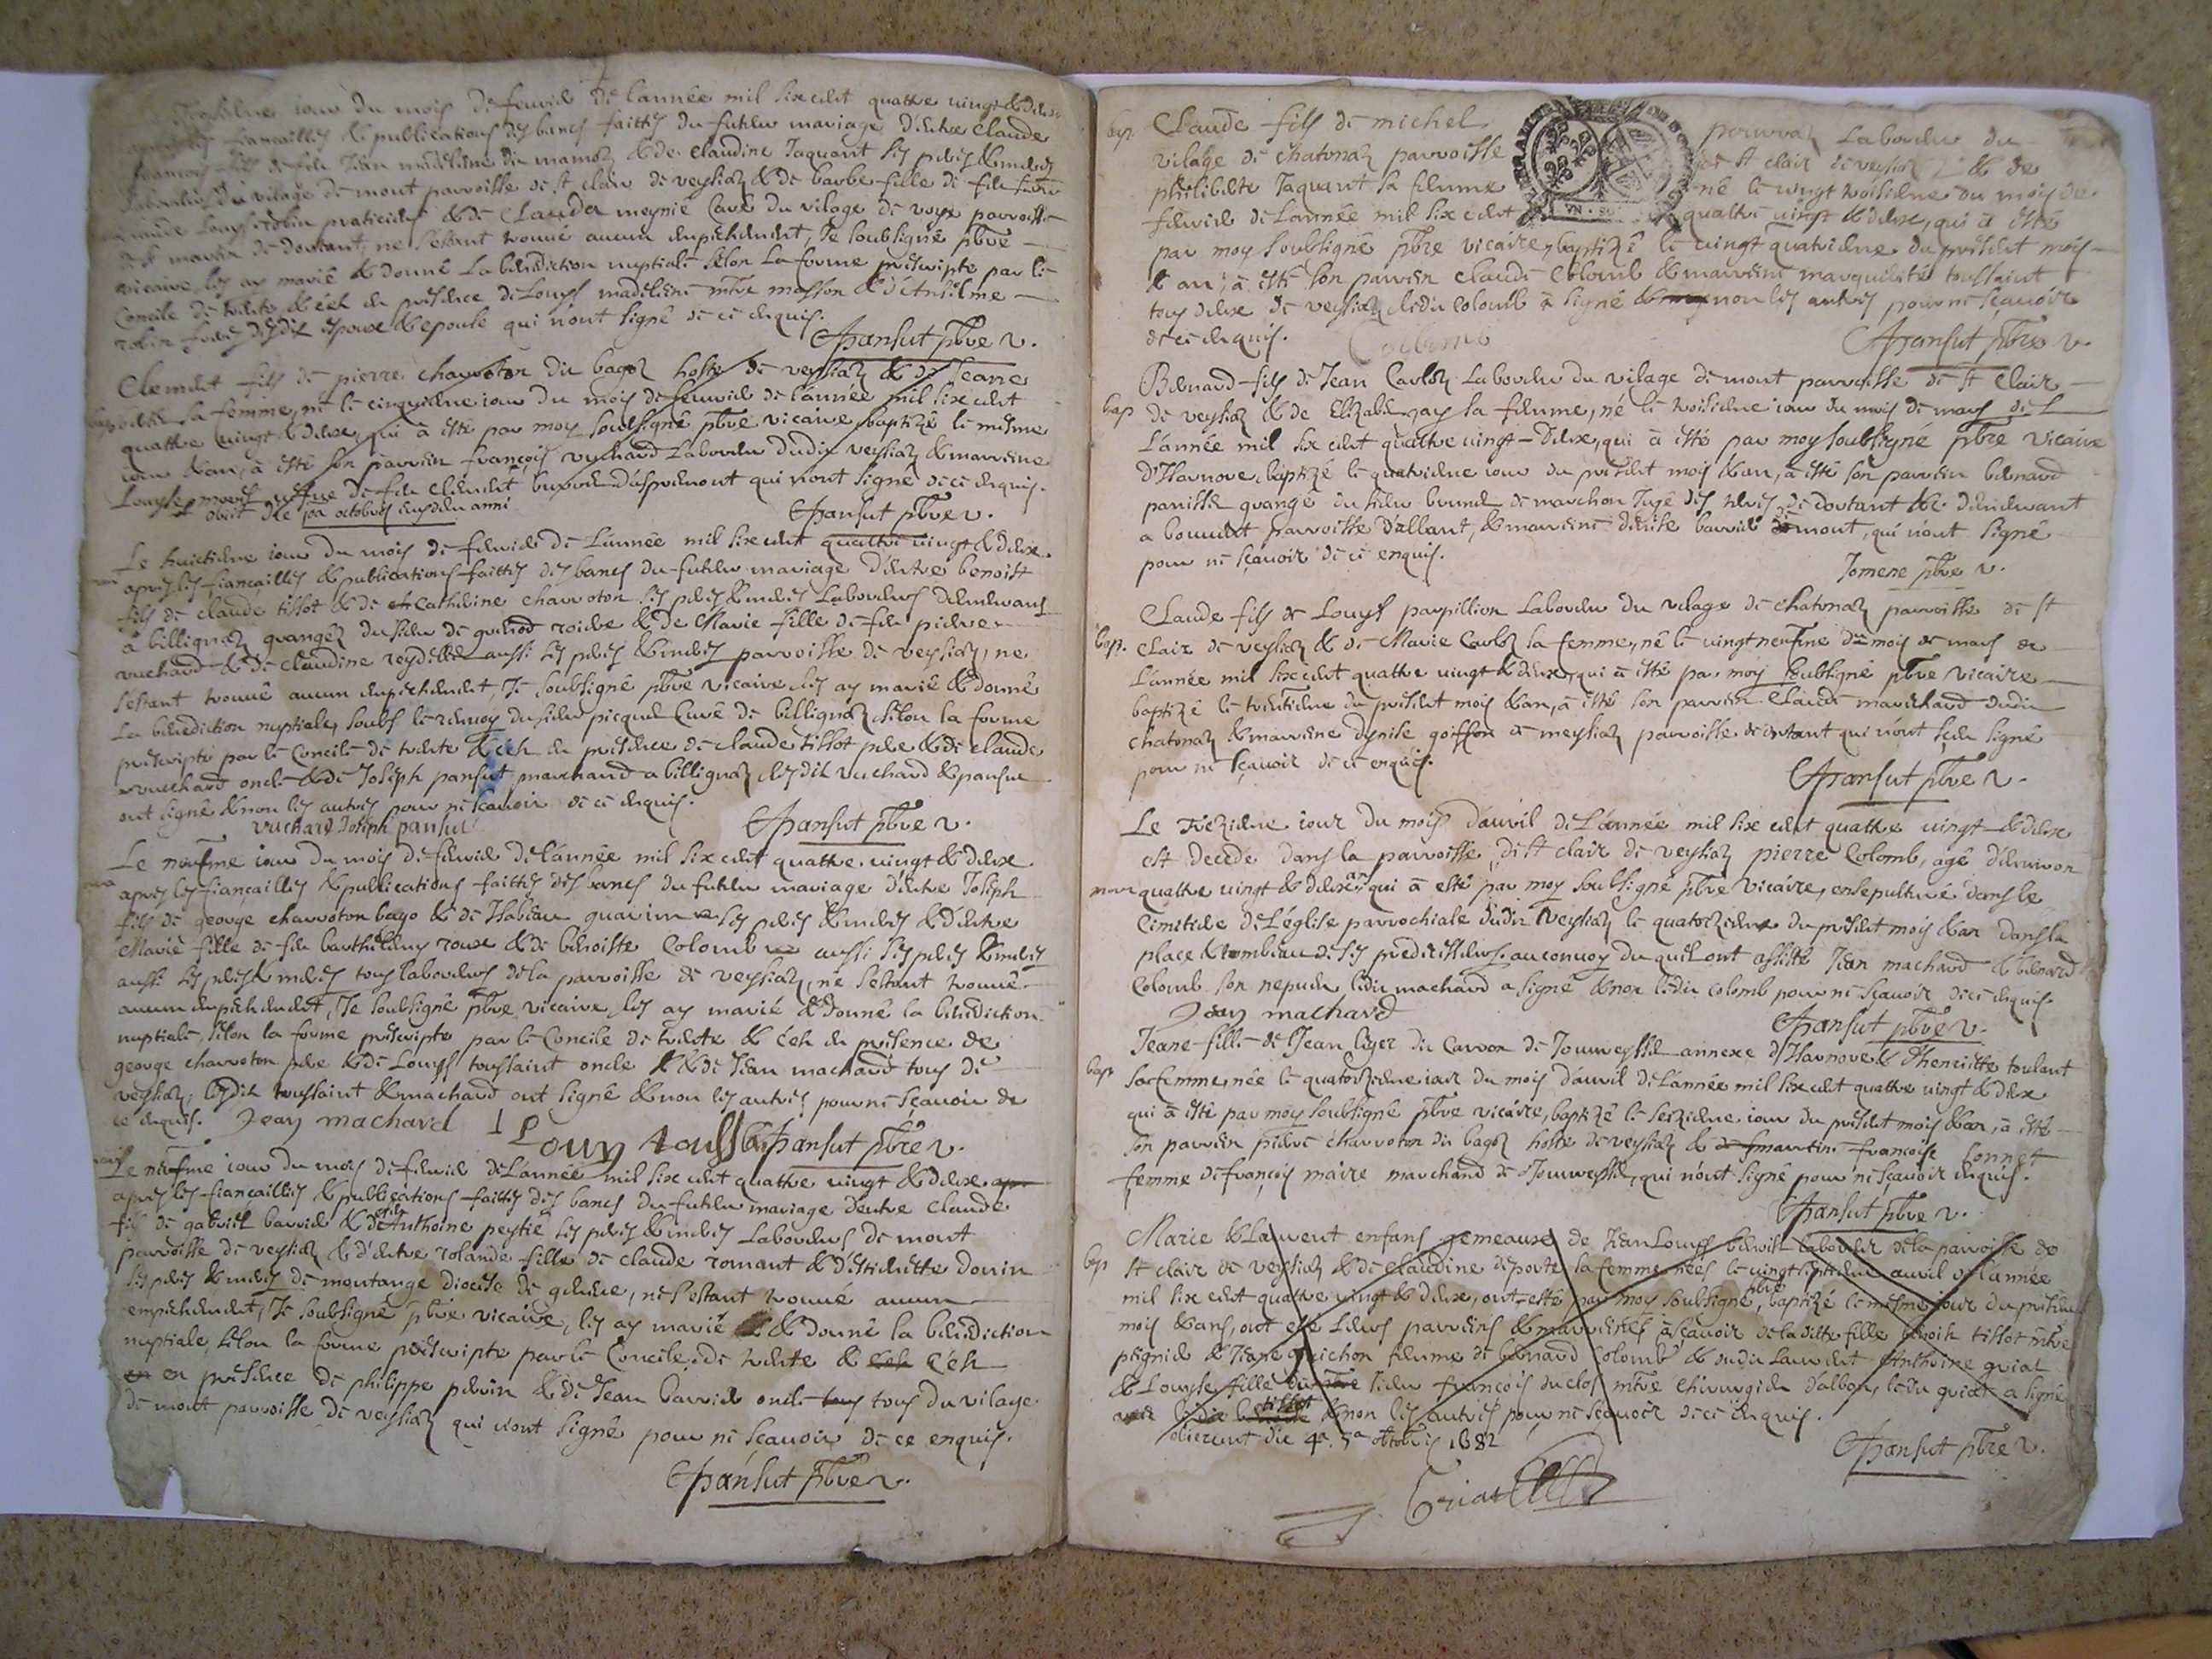 iour du mois de feuvié de l'année mil six cent quattre vingt & deux
fiançailles & publications des bancs faittes du futeur mariage d'entre Claude
fils de feu Jean madeleine du mamoz & de claudine Jaquant ses peres & meres
du vilage de mont parroisse de st clair de veyziaz & de barbe fille de feu
Louys robin praticien & de Clauda meynié Cavé du vilage de parroisse
de doutant, ne s'estant trouvé aucun empechement, Je soubsigné pbre
vicaire, les ay marié & donné La benediction nuptiale selon La forme prescripte par le
Concile de trente & c'est en presence de Louys madeleine mtre masson & d'Anthelme
robin freres desdit espoux & epouse qui n'ont signé de ce enquis.
Cpansut pbre v.
Clement fils de pierre charroton dit bagoz hoste de veyziaz & de Jeane
sa femme, né le cinquieme iour du mois de feuvié de l'année mil six cent
quattre vingt & deux, qui à esté par moy soubsigné pbre vicaire, baptizé le mesme
iour & an, à esté son parrein françois vuchard Laboureur dudit veyziaz & marreine
Louyse vefue de feu Clement qui n'ont signé de ce enquis.
obiit die 10a octobris eiusdem anni
Cpansut pbre v.
Le huictieme iour du mois de feuvié de L'année mil six cent quattre vingt & deux
apres les fiançailles & publications faittes des bancs du futeur mariage d'entre benoist
fils de claude tissot & de Catherine charroton ses peres & meres Laboureurs demeurans
à billignaz grangez du sieur de & de Marie fille de feu pierre
vuchard & de claudine reydellet aussi ses peres & meres parroisse de veyziaz, ne
s'estant trouvé aucun empechement, Je soubsigné pbre vicaire, les ay marié & donné
La benediction nuptiale, soubs le renvoy du sieur picquet Curé de billignaz, selon la forme
prescripte par le Concile de trente & c'est en presence de claude tissot pere & de claude
vuchard oncle & de Joseph pansut marchand a billignaz, lesdit vuchard & pansut
ont signé & non les autres pour ne sçavoir de ce enquis.
vuchard Joseph pansut
Cpansut pbre v.
Le neufme iour du mois de feuvié de l'année mil six cent quattre vingt & deux
apres les fiançailles & publications faittes des bancs du futeur mariage d'entre Joseph
fils de george charroton bago & de Isabeau ses peres & meres & d'entre
Marie fille de feu barthelemy roux & de benoiste Colomb aussi ses peres & meres
aussi ses peres & meres tous laboureurs de la parroisse de veyziaz, ne s'estant trouvé
aucun empechement, Je soubsigné pbre vicaire, les ay marié & donné la benediction
nuptiale, selon la forme prescripte par le Concile de trente & c'est en presence de
george charroton pere & de Louys toussaint oncle & de Jean machard tous de
veyziaz, lesdit toussaint & machard ont signé & non les autres pour ne sçavoir de
ce enquis. Jean machard Louy touss Cpansut pbre v.
Le neufme iour du mois de feuvié de L'année mil six cent quattre vingt & deux
apres les fiançailles & publications faittes des bancs du futeur mariage d'entre Claude
fils de gabriel barrié & de Anthoine peytié ses peres & meres Laboureurs de mont
parroisse de veyziaz & d'entre rolande fille de claude romant & d'Estiennette donin
ses peres & meres de montange diocese de geneve, ne s'estant trouvé aucun
empechement, Je soubsigné pbre vicaire, les ay marié & donné la benediction
nuptiale, selon la forme prescripte par le Concile de trente & c'est c'est
en presence de philippe perrin & de Jean barrié oncle tous tous du vilage
de mont parroisse de veyziaz qui n'ont signé pour ne sçavoir de ce enquis.
Cpansut pbre v.
bap. Claude fils de michel pouvraz Laboureur du
vilage de chatonaz parroisse de st clair de veyziaz & de
philiberte Jaquant sa femme né le vingt troisieme du mois de
feuvié de L'année mil six cent quattre vingt & deux, qui à esté
par moy soubsigné pbre vicaire, baptizé le vingt quatrieme du present mois
& an, à esté son parrein Claude Colomb & marreine marguerite toussaint
tous deux de veyziaz, ledit Colomb à signé & non les autres pour ne sçavoir
de ce enquis. Colomb
Cpansut pbre v.
bap Benard fils de Jean Carloz Laboureur du vilage de mont parroisse de st Clair
de veyziaz & de Elizabet sa femme, né le troisieme iour du mois de mars de L
L'année mil six cent quattre vingt deux, qui à esté par moy soubsigné pbre Vicaire
d'Harnove, baptizé le quatrieme iour du present mois & an, à esté son parrein benard
panisset grangé du sieur brunet de marchon Jugé des terres de doutant & demeurant
a bouvent parroisse d'allant, & marreine denise barrié de mont, qui n'ont signé
pour ne sçavoir de ce enquis.
Jomene pbre v.
bap. Claude fils de Louys parpillion Laboureur du vilage de chatonaz parroisse de st
Clair de veyziaz & de Marie Carloz sa femme, né le vingt neufme du mois de mars de
L'année mil six cent quattre vingt & deux, qui à esté par moy soubsigné pbre vicaire
baptizé le trentieme du present mois & an, à esté son parrein Claude marechand dudit
chatonaz & marreine dynise goiffon de meyziaz parroisse de doutant qui n'ont sceu signé
pour ne sçavoir de ce enquis.
Cpansut pbre v.
Le treizieme iour du mois d'avril de L'année mil six cent quattre vingt & deux
est decedé dans la parroisse de st clair de veyziaz pierre Colomb, agé d'environ
mort quattre vingt & deux ans, qui à esté par moy soubsigné pbre Vicaire, ensepulturé dans le
Cimetiere de L'église parrochiale dudit Veyziaz le quatorzieme du present mois & an dans la
place & tombeau de ses predecesseurs, au convoy du quel ont assisté Jean machard & benard
Colomb son nepueu ledit machard a signé & non ledit colomb pour ne sçavoir de ce enquis.
Jean machard
Cpansut pbre v.
bap Jeane fille de Jean Léger dit Carron de Jouvreyssia annexe d'Harnove & d'henriette toulant
sa femme, née le quatorzieme iour du mois d'avril de L'année mil six cent quattre vingt & deux
qui à esté par moy soubsigné pbre vicaire, baptizé le seizieme iour du present mois & an, à esté
son parrein pierre charroton dit bagoz hoste de veyziaz & de martine françoise sonnet
femme de françois maire marchand de Jouvreyssia, qui n'ont signé pour ne sçavoir enquis.
Cpansut pbre v.
bap Marie & Laurent enfans gemeaux de Jean Louys benoist Laboureur de la parroisse de
st clair de veyziaz & de claudine deporte sa femme nées le vingt septieme avril de l'année
mil six cent quattre vingt & deux, ont esté par moy soubsigné pbre, baptizé le mesme iour du present
mois & ans, ont esté Leurs parreins & marreines à sçavoir de la ditte fille benoist tissot mtre
peigneur & Jeane guichon femme de bernard Colomb & dudit Laurent Anthoine guiat
& Louyse fille du sieur françois duclos mtre Chirurgien d'albon, ledit guiat a signé
avec ledit tissot & non les autres pour ne sçavoir de ce enquis.
obierunt die 4a. 5a octobris 1682
Cpansut pbre v.
Guiat